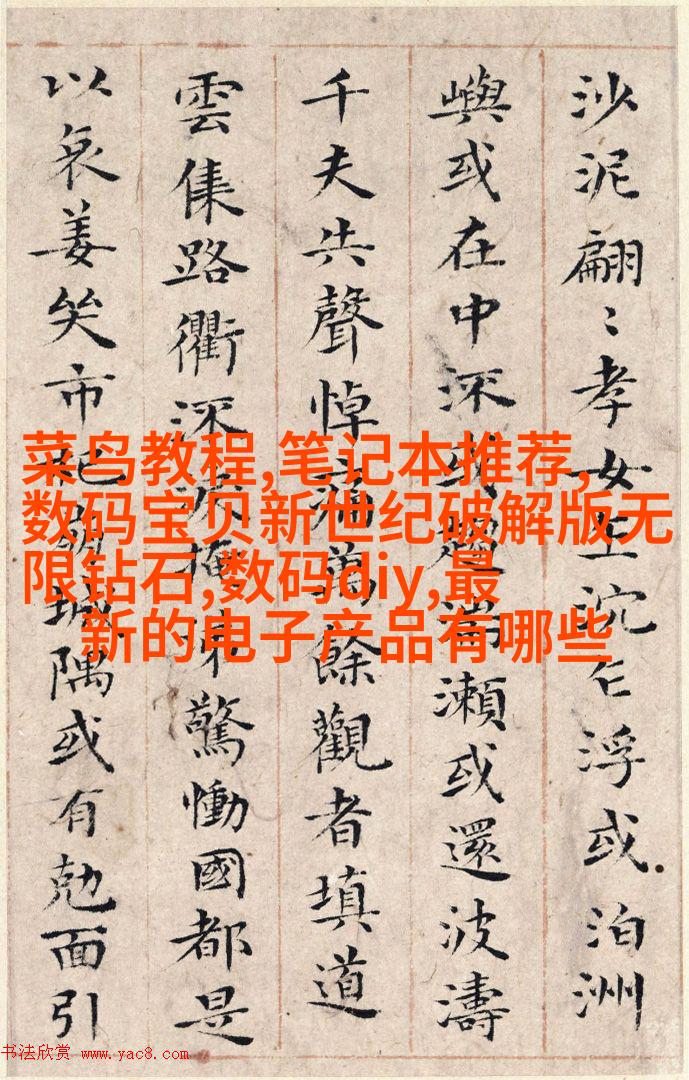 沙泥翩〻孝女乍沉乍浮或泊洲
嶼或在中流或趨湍瀨或還波濤
千夫失聲悼痛萬餘觀者填道
雲集路衢流淚掩涕驚慟國都是
以哀姜哭市杞崩城隅或有勊面引
菜鸟教程,笔记本推荐,
数码宝贝新世纪破解版无
限钻石,数码diy,最
新的电子产品有哪些
书法欣赏 www.yac8.com